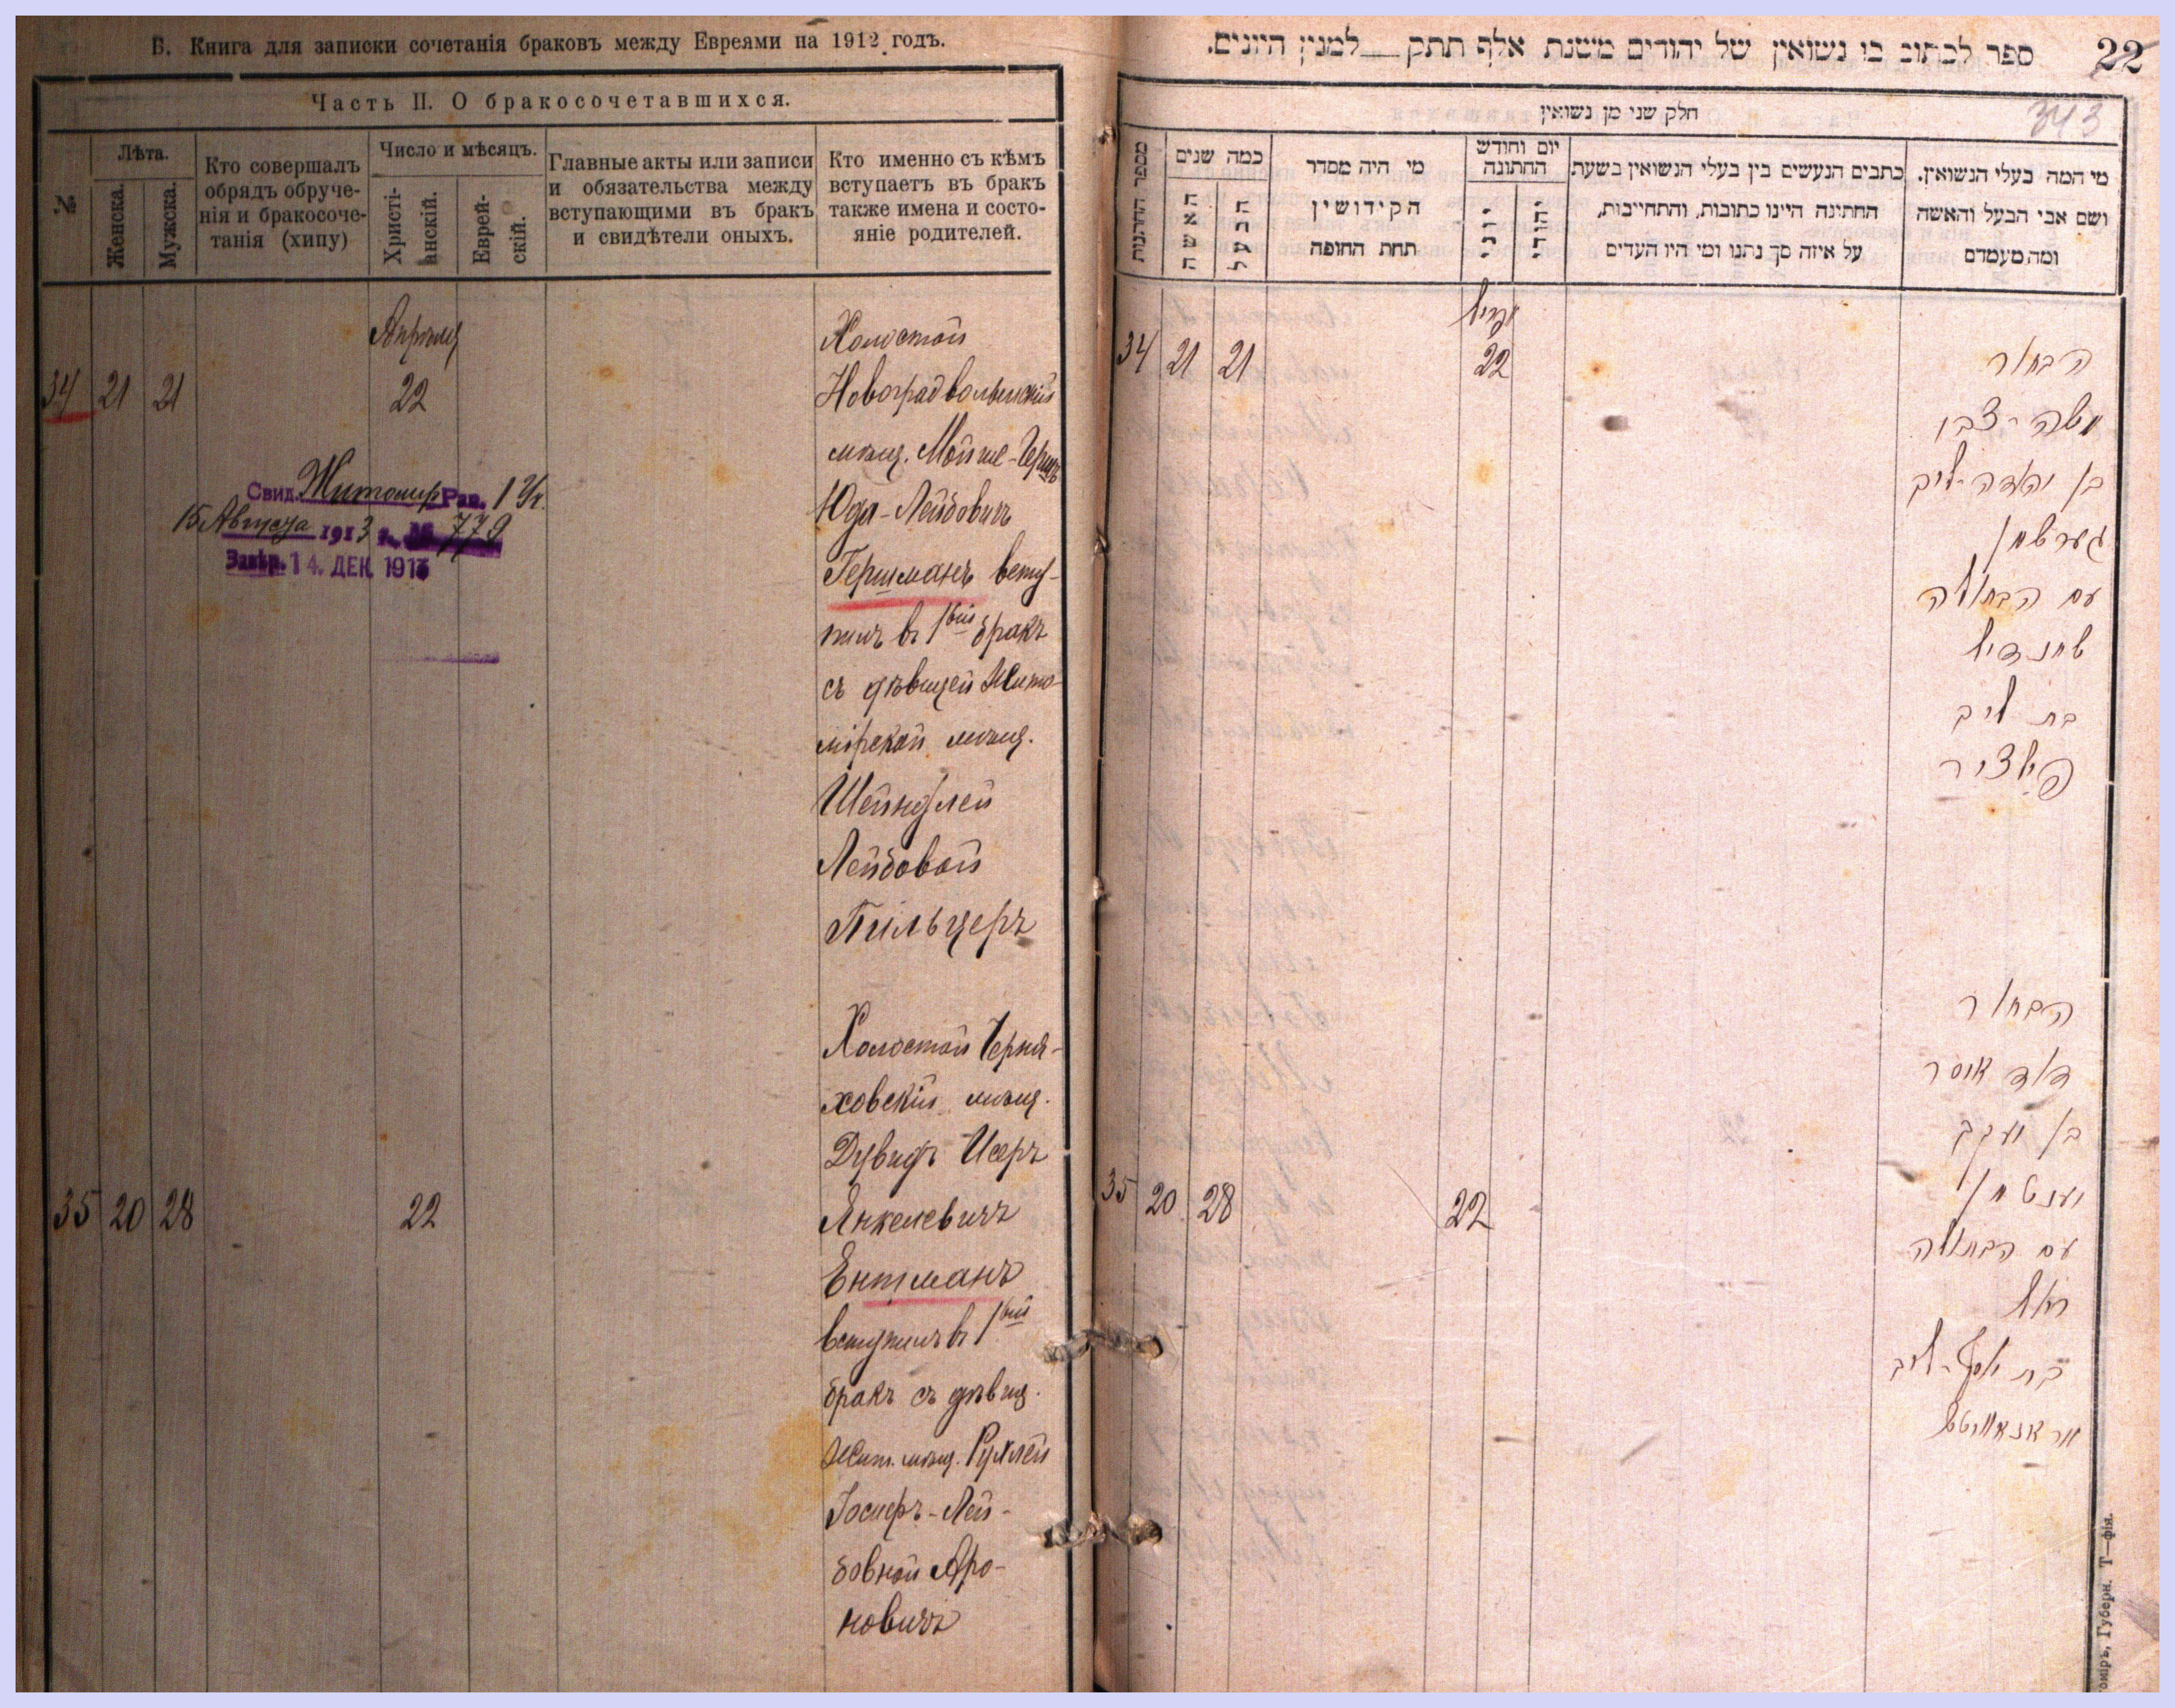 Б. Книга для записки сочетанія браковъ между Евреями на 1912 годъ.
Часть II. О бракосочетавшихся.
№
Лѣта.
Женска.
Мужска.
Кто совершалъ
обрядъ обруче-
нія и бракосоче-
танія (хипу)
Число и мѣсяцъ.
Христі-
анскій.
Еврей-
скій.
Главные акты или записи
и обязательства между
вступающими въ бракъ
и свидѣтели оныхъ.
Кто именно съ кѣмъ
вступаетъ въ бракъ
также имена и состо-
яніе родителей.
Апрѣля
34 21 21 22
Холостой
Новоградволынскій
мѣщ. Мойше-Герш
Юда-Лейбовичъ
Гершманъ всту-
пилъ въ 1вый бракъ
съ дѣвицей Жито-
мірской мѣщ.
Шейндлей
Лейбовой
Пильцеръ
Свид. Житомир Рав.
15 Августа 1913 г. № 779
Завѣр. 14. ДЕК 1913
35 20 28 22
Холостой Черня-
ховскій мѣщ.
Дувидъ Исеръ
Янкелевичъ
Ентманъ
вступилъ въ 1вый
бракъ съ дѣвиц.
Жит. мѣщ. Рухлей
Іосифъ-Лей-
бовной Аро-
новичъ
ספר לכתוב בו נשואין של יהודים משנת אלף תתק למנין היונים.
22
343
חלק שני מן נשואין
מספר החתונות
כמה שנים
האשה
הבעל
מי היה מסדר
הקידושין
תחת החופה
יום וחודש
החתונה
יוני
יהודי
כתבים הנעשים בין בעלי הנשואין בשעת
החתינה היינו כתובות, והתחייבות,
על איזה סך נתנו ומי היו העדים
מי המה בעלי הנשואין.
ושם אבי הבעל והאשה
ומה מעמדם
אפריל
34 21 21 22
הבחור
משה-צבי
בן יהודה-ליב
גערשמן
עם הבתולה
שיינדיל
בת ליב
פילציר
35 20 28 22
הבחור
דוד איסר
בן יעקב
יענטמן
עם הבתולה
רחל
בת יוסף-ליב
תומיר, Губерн. Т—фія.